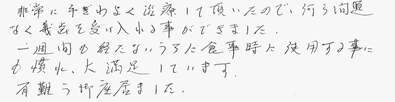 非常に手ぎわよく治療して頂いたので、何ら問題
なく義歯を受け入れる事ができました。
一週間も経たないうちに食事時に使用する事に
も慣れ、大満足しています。
有難う御座居ました。